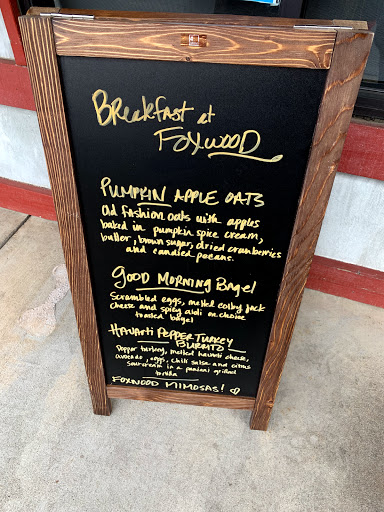 Breakfast at
Foxwood
PUMPKIN APPLE OATS
Old fashion oats with apples
baked in pumpkin spice cream,
butter, brown sugar, dried cranberries
and candied pecans.
GOOD MORNING Bagel
Scrambled eggs, melted colby jack
cheese and spicy aioli on choice
toasted bagel
HAVARTI PEPPER TURKEY
BURRITO
Pepper turkey, melted havarti cheese,
avocado, eggs, chili salsa and citrus
sour cream in a panini grilled
tortilla
FOXWOOD MIMOSAS!